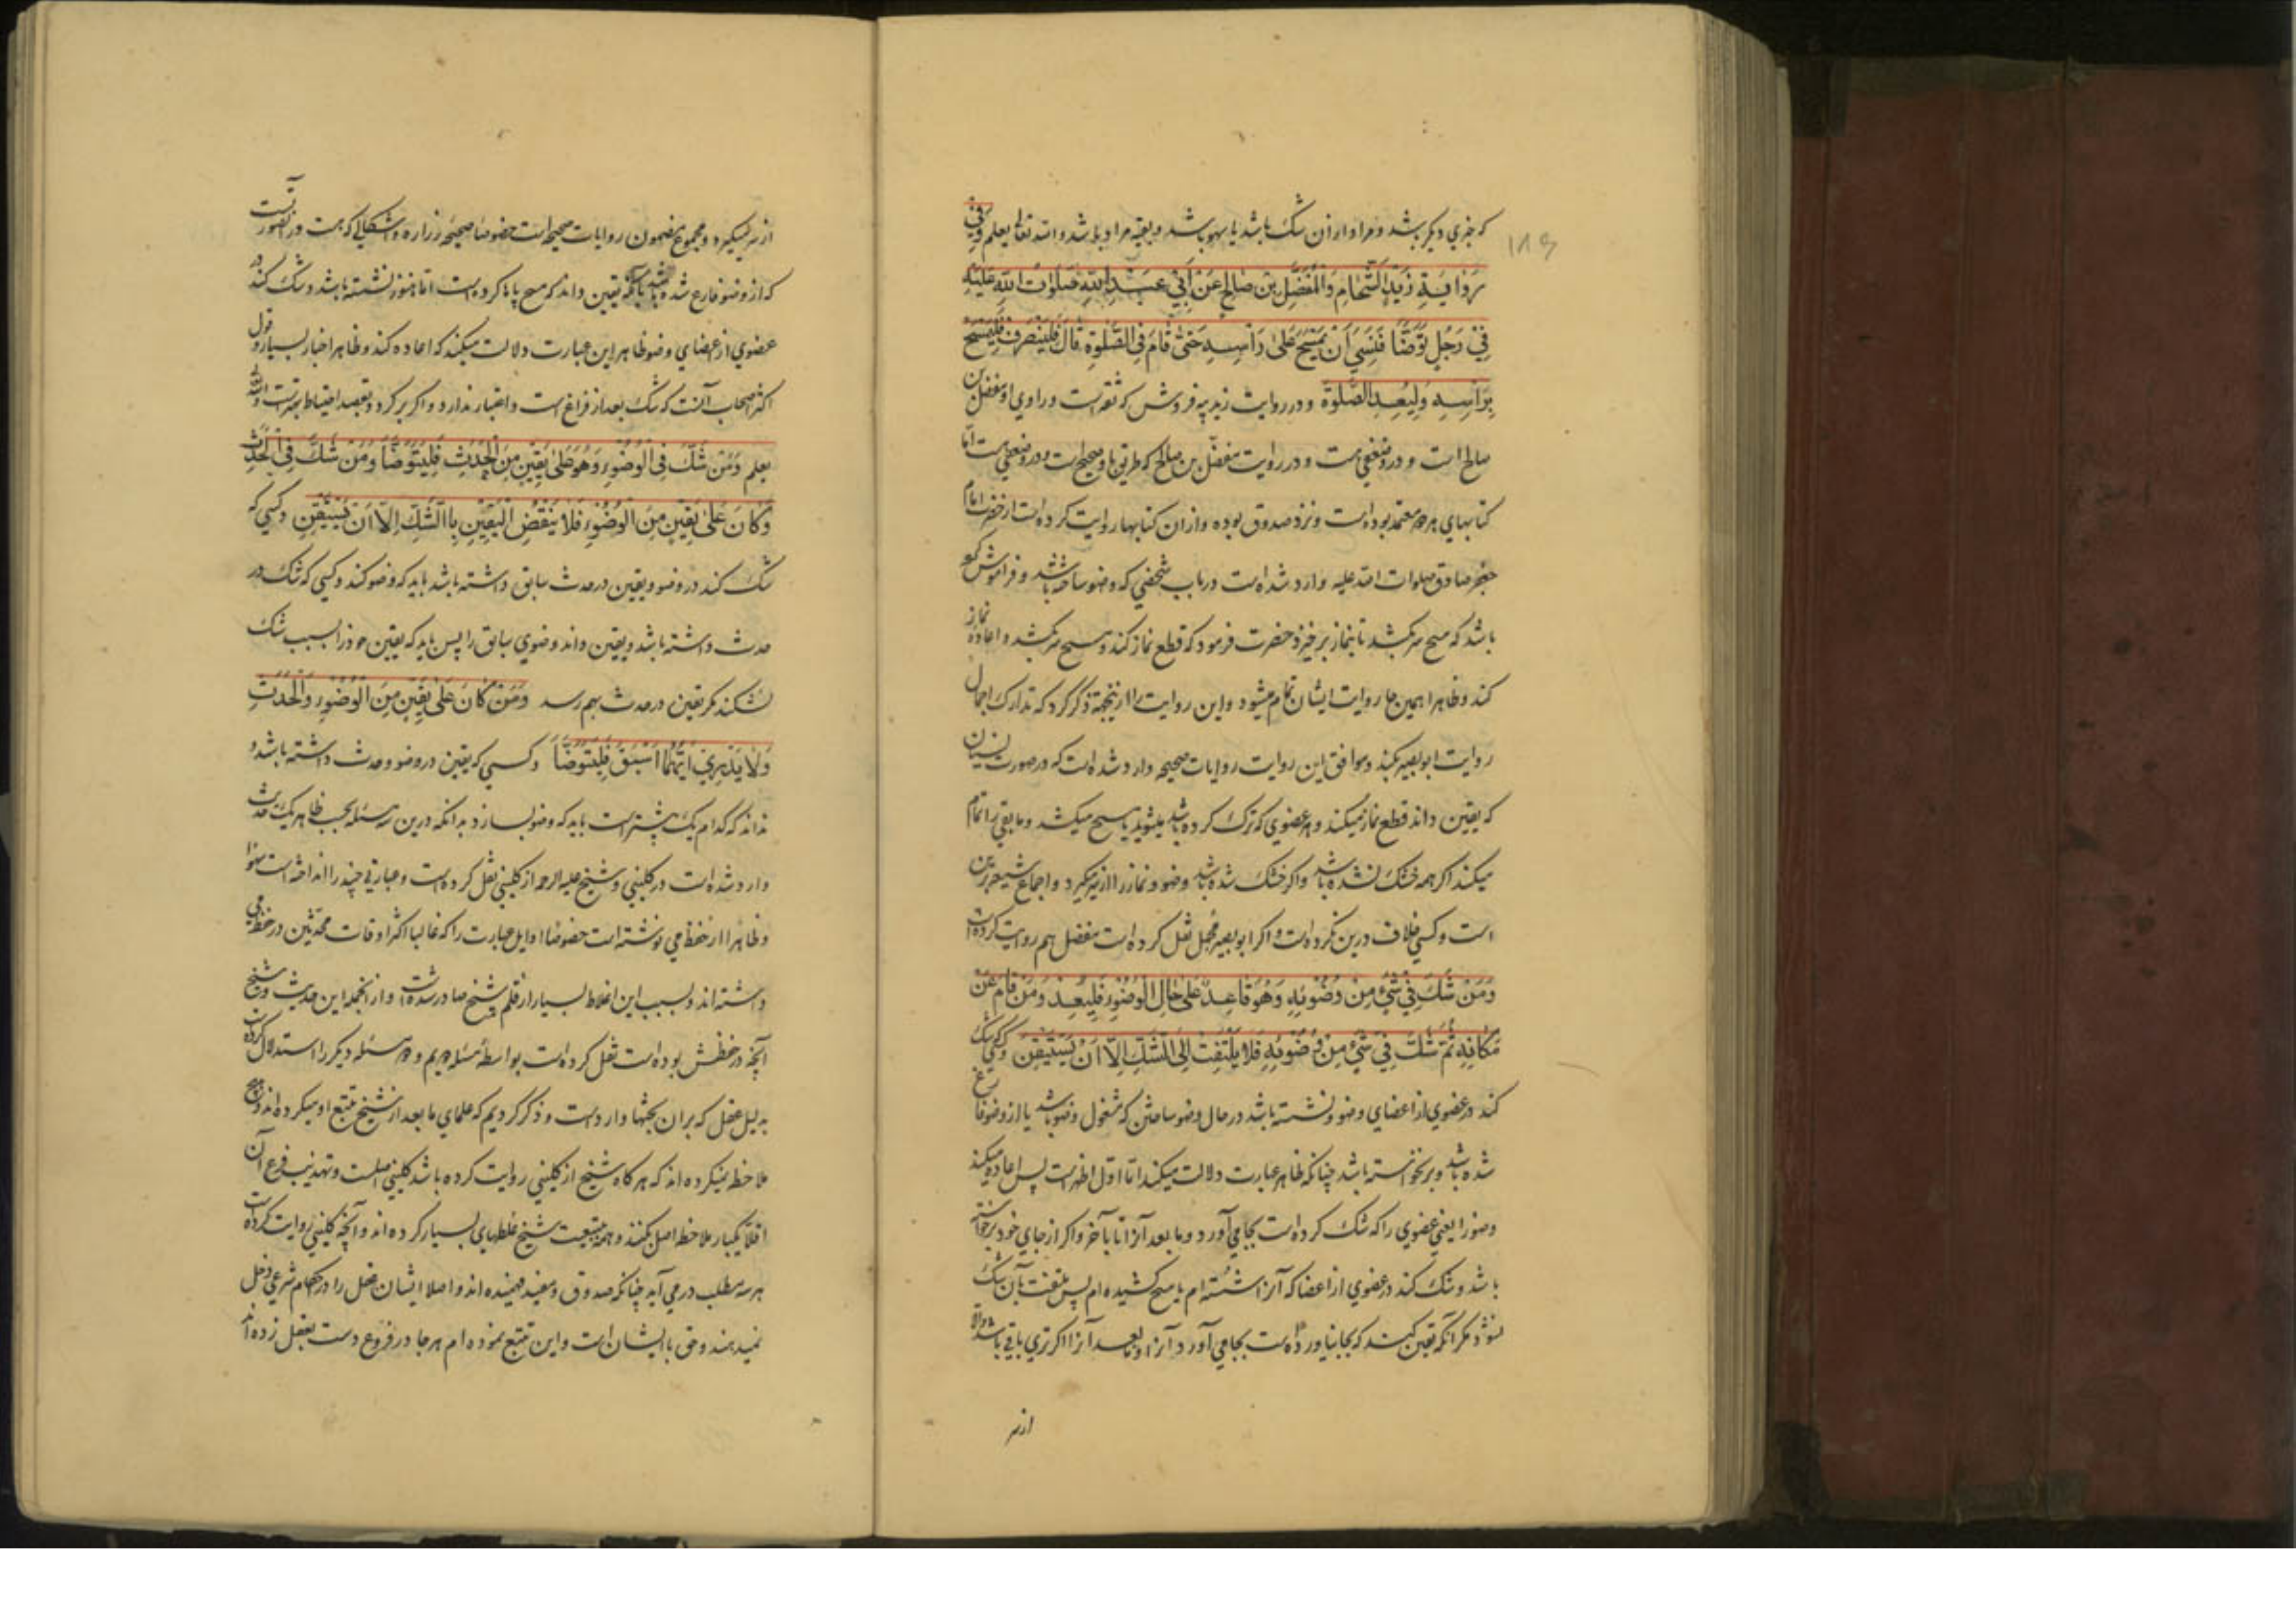 که خبری دیگر باشد و مراد از ان شک باشد یا سهو باشد و بقیه مراد باشد والله تعالی یعلم وَفِي
رِوَايَةِ زَيْدٍ الشَّحَّامِ وَالْمُفَضَّلِ بْنِ صَالِحٍ عَنْ أَبِي عَبْدِ اللهِ صَلَوَاتُ اللهِ عَلَيْهِ
فِي رَجُلٍ تَوَضَّأَ فَنَسِيَ أَنْ يَمْسَحَ عَلَى رَأْسِهِ حَتَّى قَامَ فِي الصَّلٰوةِ قَالَ فَلْيَنْصَرِفْ فَلْيَمْسَحْ
بِرَأْسِهِ وَلْيُعِدِ الصَّلٰوةَ و در روایت زید پیه فروش که ثقه است و راوی او مفضل بن
صالح است و در و ضعفی هست و در روایت مفضل بن صالح که طریق باو صحیح است و در و ضعفی هست اما
کتابهای هر دو معتمد بوده است و نزد صدوق بوده و از ان کتابها روایت کرده است از حضرت امام
جعفر صادق صلوات الله علیه وارد شده است در باب شخصی که وضو ساخته باشد و فراموش کرده
باشد که مسح سر بکشد تا بنماز برخیزد حضرت فرمود که قطع نماز کند و مسح سر بکشد و اعاده نماز
کند و ظاهرا همین جا روایت ایشان تمام میشود و این روایت را از ینجهة ذکر کرد که تدارک اجمال
روایت ابو بصیر بکند و موافق این روایت روایات صحیحه وارد شده است که در صورت نسیان
که یقین داند قطع نماز میکند و هر عضوی که ترک کرده باشد میشوید یا مسح میکشد و مابقی را تمام
میکند اگر همه خشک نشده باشد و اگر خشک شده باشد وضو و نماز را از سر میگیرد و اجماع شیعه برین
است و کسی خلاف درین نکرده است و اگر ابو بصیر مجمل نقل کرده است مفصل هم روایت کرده است
وَمَنْ شَكَّ فِي شَيْءٍ مِنْ وُضُوئِهِ وَهُوَ قَاعِدٌ عَلَى حَالِ الْوُضُوءِ فَلْيُعِدْ وَمَنْ قَامَ عَنْ
مَكَانِهِ ثُمَّ شَكَّ فِي شَيْءٍ مِنْ وُضُوئِهِ فَلَا يَلْتَفِتْ إِلَى الشَّكِّ إِلَّا أَنْ يَسْتَيْقِنَ و کسی که شک
کند در عضوی از اعضای وضو و نشسته باشد در حال وضو ساختن که مشغول وضو باشد یا از وضو فارغ
شده باشد و برنخواسته باشد چنانکه ظاهر عبارت دلالت میکند اما اول اظهر است پس اعاده میکند
وضو را یعنی عضوی را که شک کرده است بجا می آورد و ما بعد آنرا تا بآخر و اگر از جای خود برخواسته
باشد و شک کند در عضوی از اعضا که آنرا شسته ام یا مسح کشیده ام پس ملتفت بآن شک
نشود مگر آنکه یقین کند که بجا نیاورده است بجا می آورد آنرا و ما بعد آنرا اگر تری باقی باشد والا
از سر
از سر میگیرد و مجموع مضمون روایات صحیحه است خصوصا صحیحه زراره و اشکالی که هست در انصورت آنست
که از وضو فارغ شده باشد یا آنکه یقین داند که مسح پاها کرده است اما هنوز نشسته باشد و شک کند در
عضوی از اعضای وضو ظاهر این عبارت دلالت میکند که اعاده کند و ظاهر اخبار بسیار و قول
اکثر اصحاب آنست که شک بعد از فراغ است و اعتبار ندارد و اگر برگردد و بقصد احتیاط بهتر است والله
یعلم وَمَنْ شَكَّ فِي الْوُضُوءِ وَهُوَ عَلَى يَقِينٍ مِنَ الْحَدَثِ فَلْيَتَوَضَّأْ وَمَنْ شَكَّ فِي الْحَدَثِ
وَكَانَ عَلَى يَقِينٍ مِنَ الْوُضُوءِ فَلَا يَنْقُضُ الْيَقِينَ بِالشَّكِّ إِلَّا أَنْ يَسْتَيْقِنَ و کسی که
شک کند در وضو و یقین در حدث سابق داشته باشد باید که وضو کند و کسی که شک در
حدث داشته باشد و یقین داند وضوی سابق را پس باید که یقین خود را بسبب شک
نشکند مگر یقین در حدث بهم رسد وَمَنْ كَانَ عَلَى يَقِينٍ مِنَ الْوُضُوءِ وَالْحَدَثِ
وَلَا يَدْرِي أَيُّهُمَا أَسْبَقُ فَلْيَتَوَضَّأْ و کسی که یقین در وضو و حدث داشته باشد و
نداند که کدام یک پیشتر است باید که وضو بسازد بدانکه درین سه مسئله بحسب ظاهر یک حدیث
وارد شده است در کلینی و شیخ علیه الرحمه از کلینی نقل کرده است و عبارتی چند را انداخته است سهوا
و ظاهرا از حفظ می نوشته است خصوصا اوایل عبارت را که غالبا اکثر اوقات محدثین در حفظ می
داشته اند و بسبب این اغلاط بسیار از قلم شیخ صادر شده است و از انجمله این حدیث و شیخ
آنچه در حفظش بوده است نقل کرده است بواسطه مسئله دویم و دو مسئله دیگر را استدلال کرده است
بدلیل عقل که بران بحثها وارد است و ذکر کردیم که علمای ما بعد از شیخ تتبع او میکرده اند و
ملاحظه نمیکرده اند که هر گاه شیخ از کلینی روایت کرده باشد کلینی اصلست و تهذیب فرع آن
اقلا یکبار ملاحظه اصل بکنند و همه بتبعیت شیخ غلطهای بسیار کرده اند و آنچه کلینی روایت کرده است
هر سه مطلب در می آید چنانکه صدوق و مفید فهمیده اند و اصلا ایشان عقل را در احکام شرعی دخل
نمیدهند و حق با ایشان است و این تتبع نموده ام هر جا در فروع دست بعقل زده اند